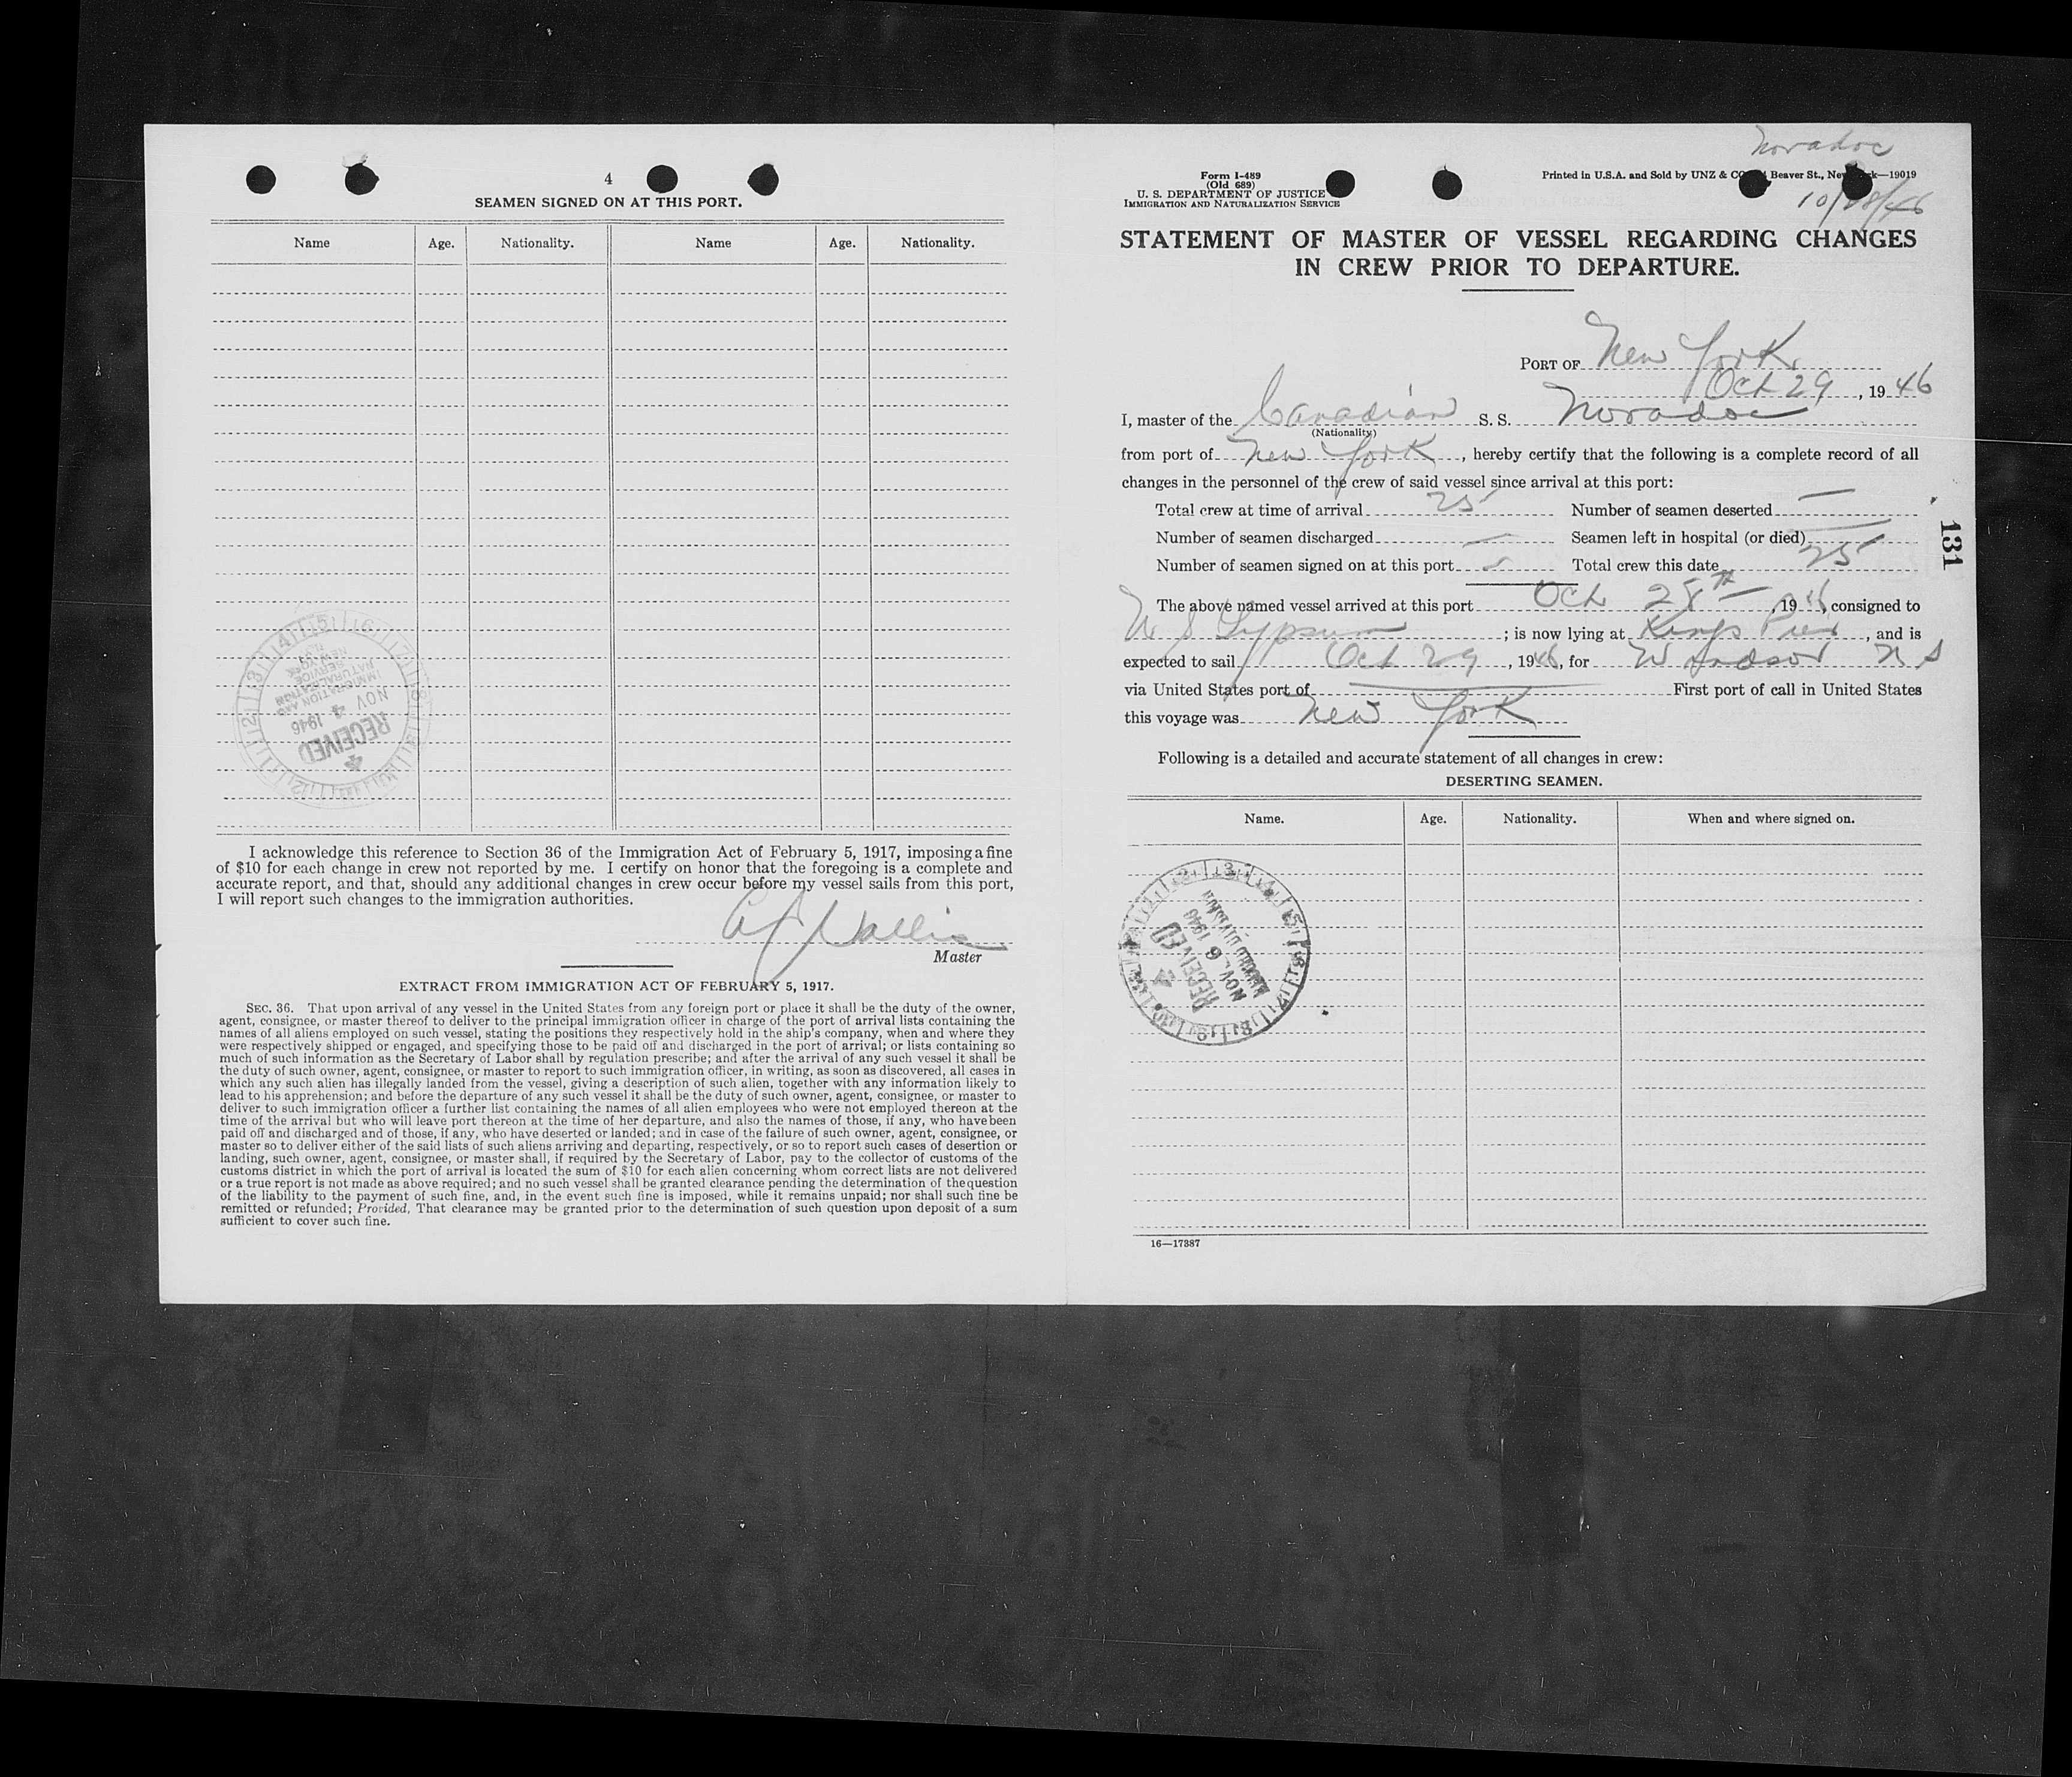 4
SEAMEN SIGNED ON AT THIS PORT.
Name Age. Nationality. Name Age. Nationality.
RECEIVED
NOV 4 1946
I acknowledge this reference to Section 36 of the Immigration Act of February 5, 1917, imposing a fine
of $10 for each change in crew not reported by me. I certify on honor that the foregoing is a complete and
accurate report, and that, should any additional changes in crew occur before my vessel sails from this port,
I will report such changes to the immigration authorities.
Wallis
Master
EXTRACT FROM IMMIGRATION ACT OF FEBRUARY 5, 1917.
SEC. 36. That upon arrival of any vessel in the United States from any foreign port or place it shall be the duty of the owner,
agent, consignee, or master thereof to deliver to the principal immigration officer in charge of the port of arrival lists containing the
names of all aliens employed on such vessel, stating the positions they respectively hold in the ship's company, when and where they
were respectively shipped or engaged, and specifying those to be paid off and discharged in the port of arrival; or lists containing so
much of such information as the Secretary of Labor shall by regulation prescribe; and after the arrival of any such vessel it shall be
the duty of such owner, agent, consignee, or master to report to such immigration officer, in writing, as soon as discovered, all cases in
which any such alien has illegally landed from the vessel, giving a description of such alien, together with any information likely to
lead to his apprehension; and before the departure of any such vessel it shall be the duty of such owner, agent, consignee, or master to
deliver to such immigration officer a further list containing the names of all alien employees who were not employed thereon at the
time of the arrival but who will leave port thereon at the time of her departure, and also the names of those, if any, who have been
paid off and discharged and of those, if any, who have deserted or landed; and in case of the failure of such owner, agent, consignee, or
master so to deliver either of the said lists of such aliens arriving and departing, respectively, or so to report such cases of desertion or
landing, such owner, agent, consignee, or master shall, if required by the Secretary of Labor, pay to the collector of customs of the
customs district in which the port of arrival is located the sum of $10 for each alien concerning whom correct lists are not delivered
or a true report is not made as above required; and no such vessel shall be granted clearance pending the determination of the question
of the liability to the payment of such fine, and, in the event such fine is imposed, while it remains unpaid; nor shall such fine be
remitted or refunded; Provided, That clearance may be granted prior to the determination of such question upon deposit of a sum
sufficient to cover such fine.
Noradoc
10/28/46
Form I-489
(Old 689)
U. S. DEPARTMENT OF JUSTICE
IMMIGRATION AND NATURALIZATION SERVICE
Printed in U.S.A. and Sold by UNZ & CO Beaver St., New k—19019
STATEMENT OF MASTER OF VESSEL REGARDING CHANGES
IN CREW PRIOR TO DEPARTURE.
PORT OF New York
Oct 29, 1946
I, master of the Canadian S. S. Noradoc
(Nationality)
from port of New York, hereby certify that the following is a complete record of all
changes in the personnel of the crew of said vessel since arrival at this port:
Total crew at time of arrival 25 Number of seamen deserted —
Number of seamen discharged — Seamen left in hospital (or died) —
Number of seamen signed on at this port Total crew this date 25
131
The above named vessel arrived at this port Oct 28th, 1946, consigned to
U S Gypsum; is now lying at Kings Pier, and is
expected to sail Oct 29, 1946, for Windsor N S
via United States port of — First port of call in United States
this voyage was New York
Following is a detailed and accurate statement of all changes in crew:
DESERTING SEAMEN.
Name. Age. Nationality. When and where signed on.
RECEIVED
NOV 6 1946
RECORD DIVISION
16—17387